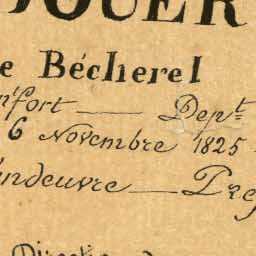 JOUER
e Bécherel
nfort — Dept
6 Novembre 1825
andeuvre — Pref
Directi